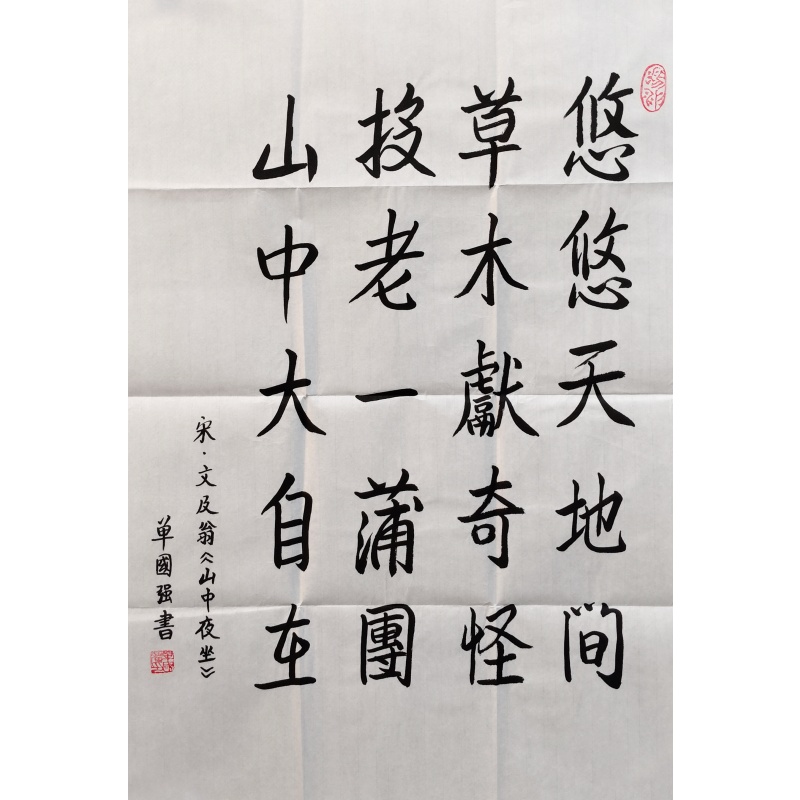 悠悠天地间
草木獻奇怪
投老一蒲團
山中大自在
宋·文及翁《山中夜坐》
单國强書